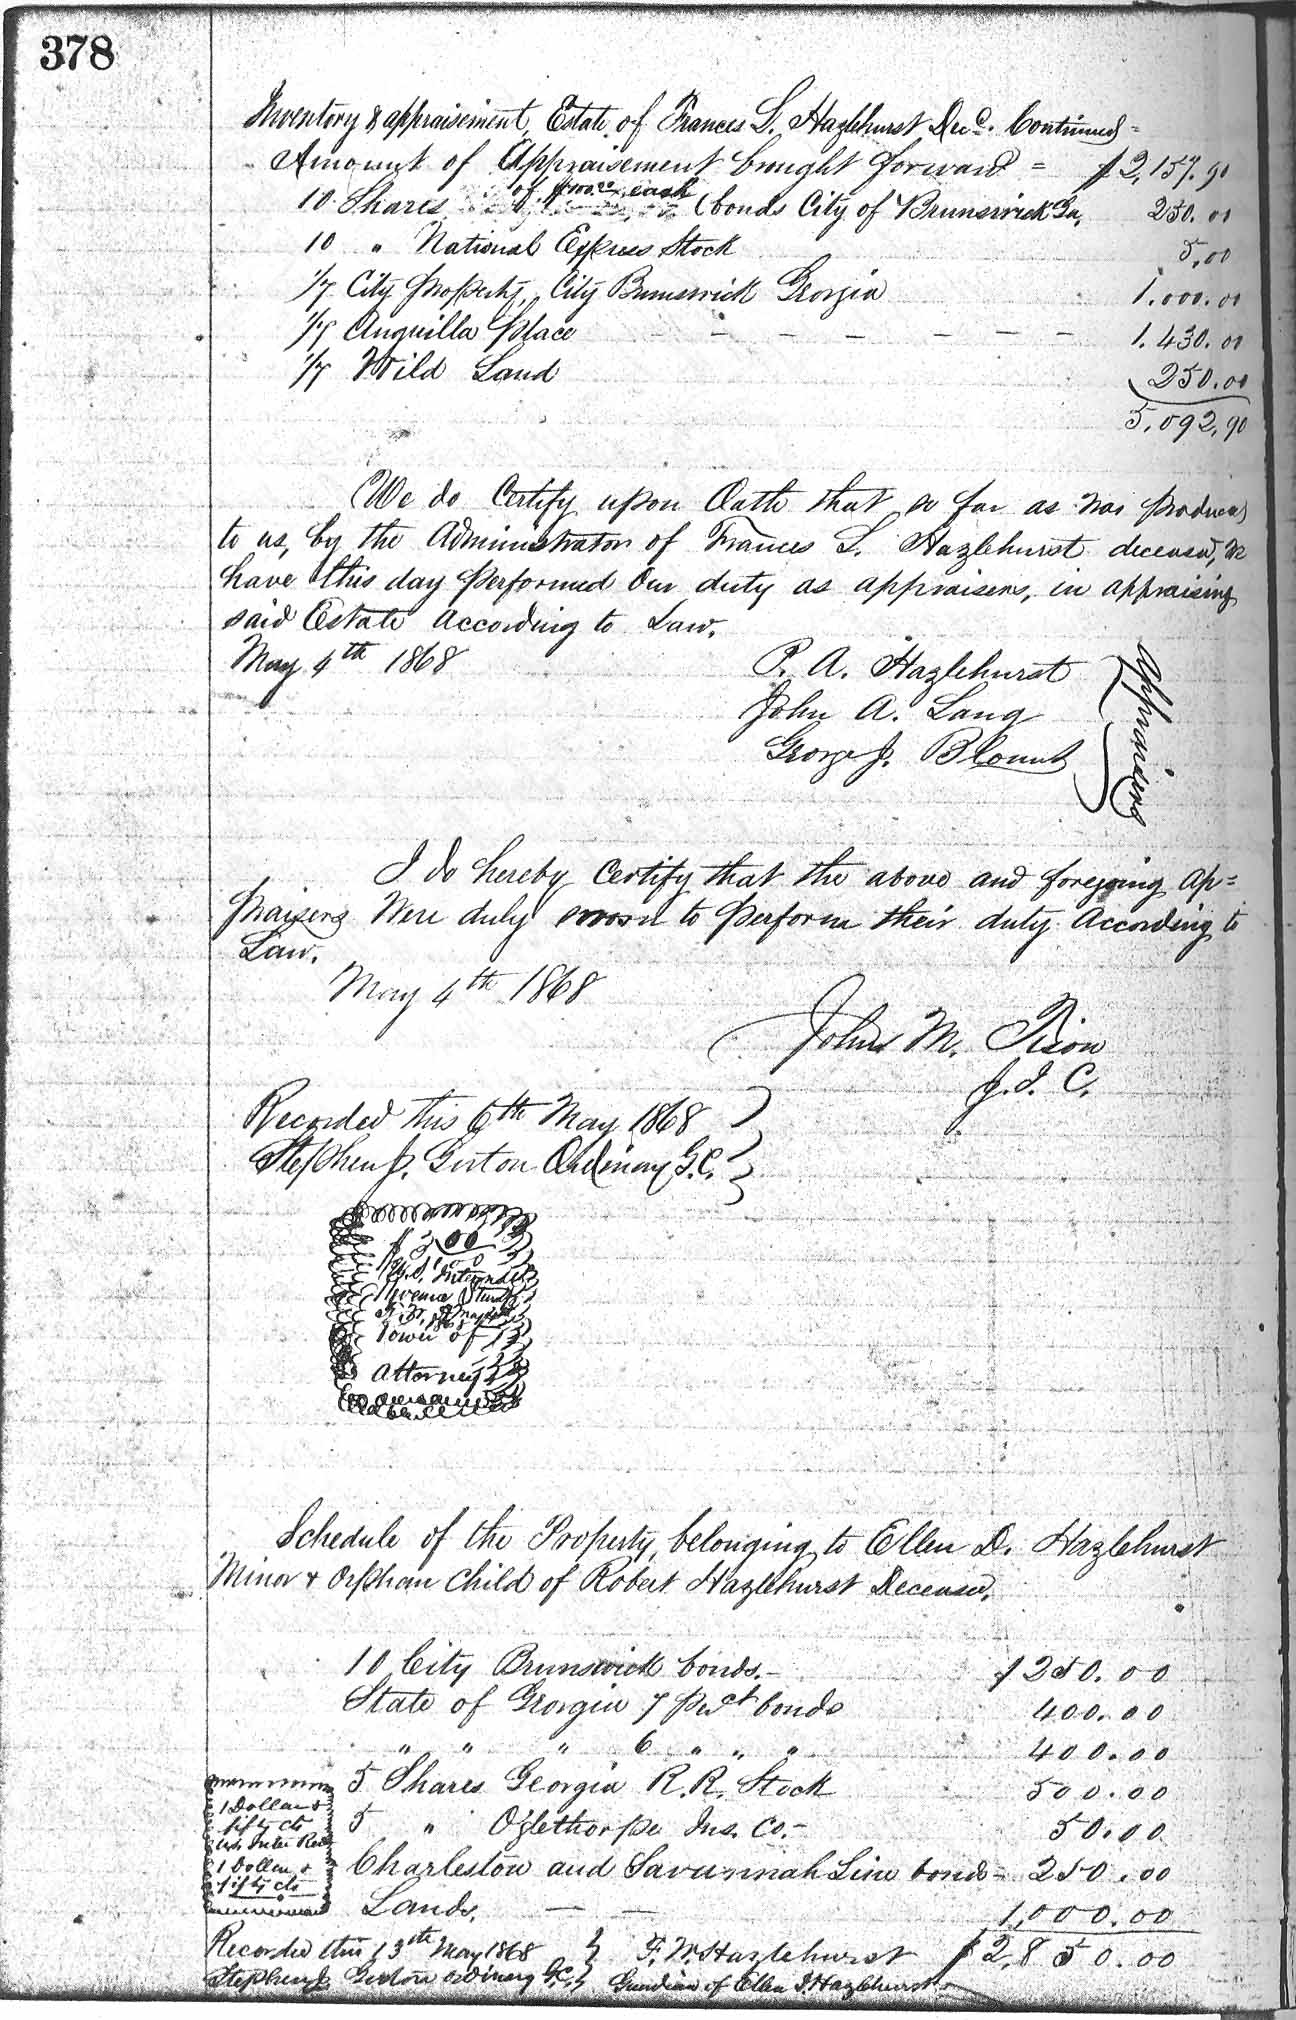 378
Inventory & appraisement, Estate of Frances L. Hazlehurst Decd. Continued =
Amount of Appraisement brought forward = $2,157.90
10 Shares of $100.00 each (bonds City of Brunswick Ga, 250.00
10 " National Express Stock 5,00
1/7 City property, City Brunswick Georgia 1.000.00
1/7 Anguilla place - - - - - - 1.430.00
1/7 Wild Land 250.00
5,092,90
We do Certify upon Oath that so far as was produced
to us, by the Administrator of Frances L. Hazlehurst deceased, we
have this day performed our duty as appraisers, in appraising
said Estate According to Law.
May 4th 1868
P. A. Hazlehurst
John A. Lang
George J. Blount
Appraisers
I do hereby Certify that the above and foregoing Ap=
praisers Were duly sworn to perform their duty According to
Law.
May 4th 1868
John M. Tison
J. I. C.
Recorded this 6th May 1868
Stephen J. Gorton Ordinary G.C.
U.S. Internal
Revenue
Power of
Attorney
Schedule of the Property, belonging to Ellen D. Hazlehurst
Minor & Orphan Child of Robert Hazlehurst Deceased,
10 City Brunswick bonds.- $250.00
State of Georgia 7 per ct bonds 400.00
" " " 6 " " " 400.00
5 Shares Georgia R.R. Stock 500.00
5 " Oglethorpe Ins. Co.- 50.00
Charleston and Savannah Line bonds- 250.00
Lands. - - 1,000.00
1 Dollar &
fifty cts
Inter Rev
1 Dollar &
fifty cts
Recorded this 13th May 1868 F. W. Hazlehurst $2,850.00
Stephen J. Gorton ordinary G.C. Guardian of Ellen D. Hazlehurst